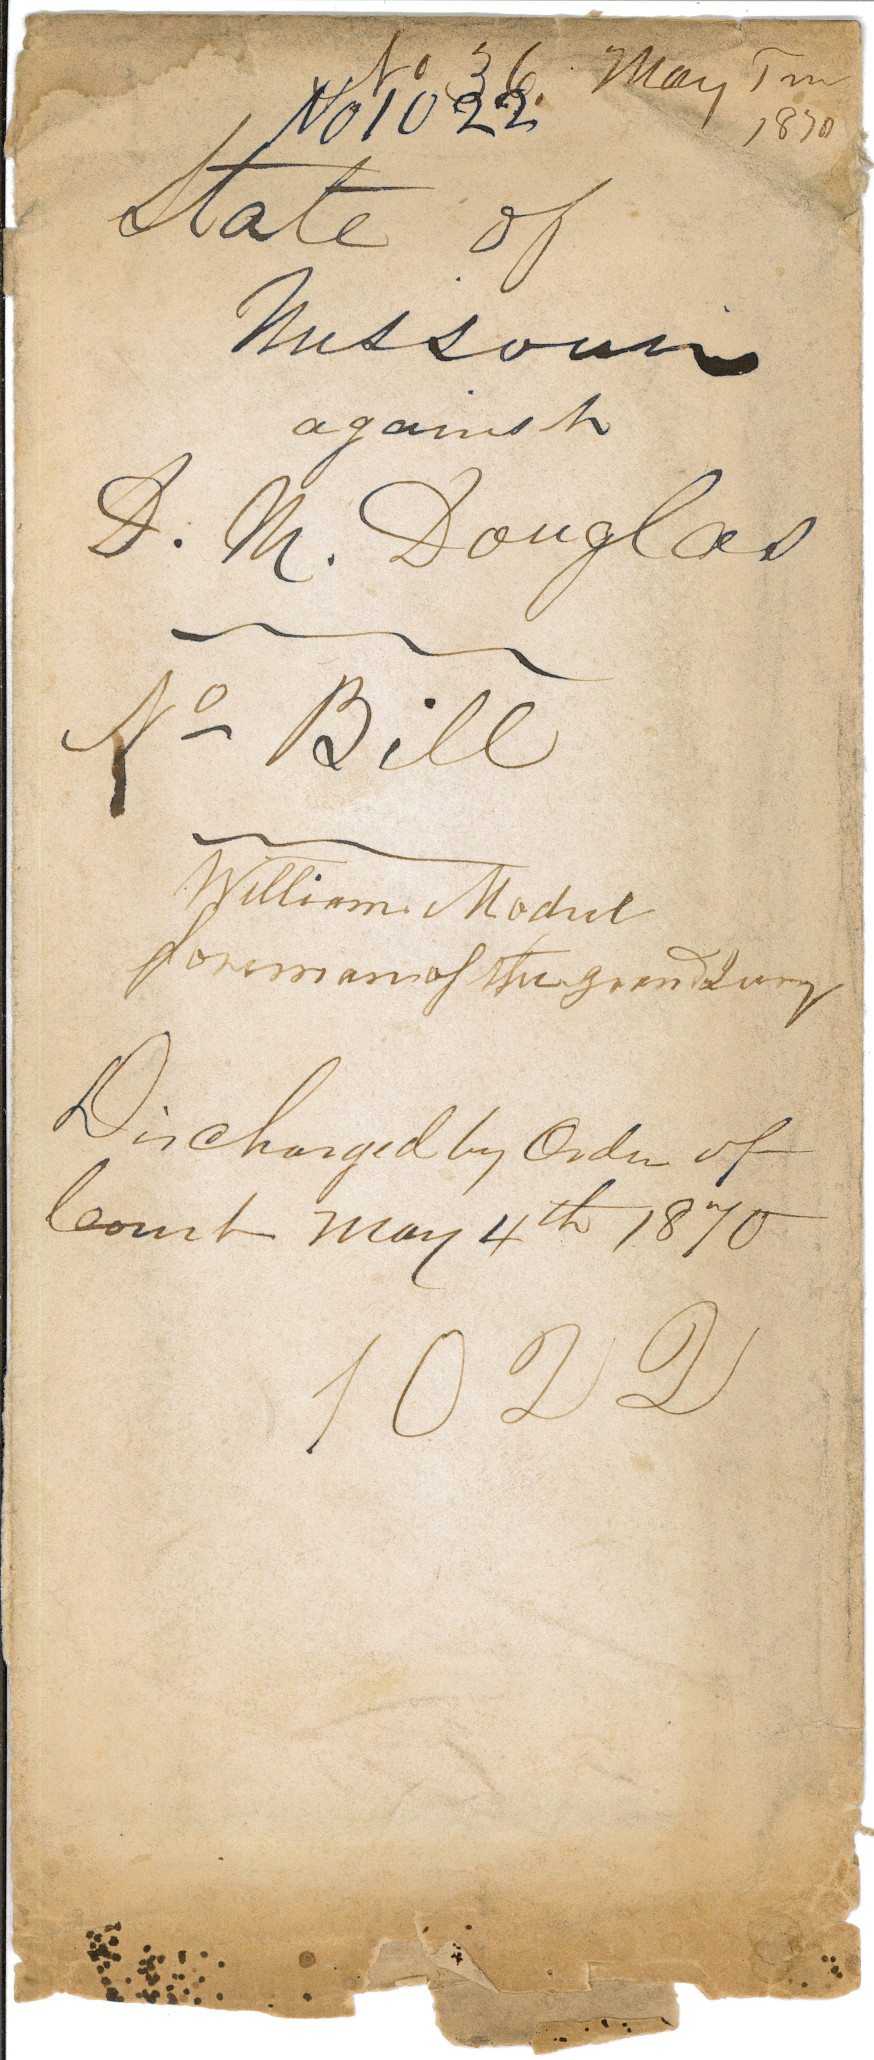 No 36. May Tm
1870
No 1022
State of
Missouri
against
D. M. Douglas
No Bill
William
foreman of the grand Jury
Discharged by Order of
Court May 4th 1870
1022